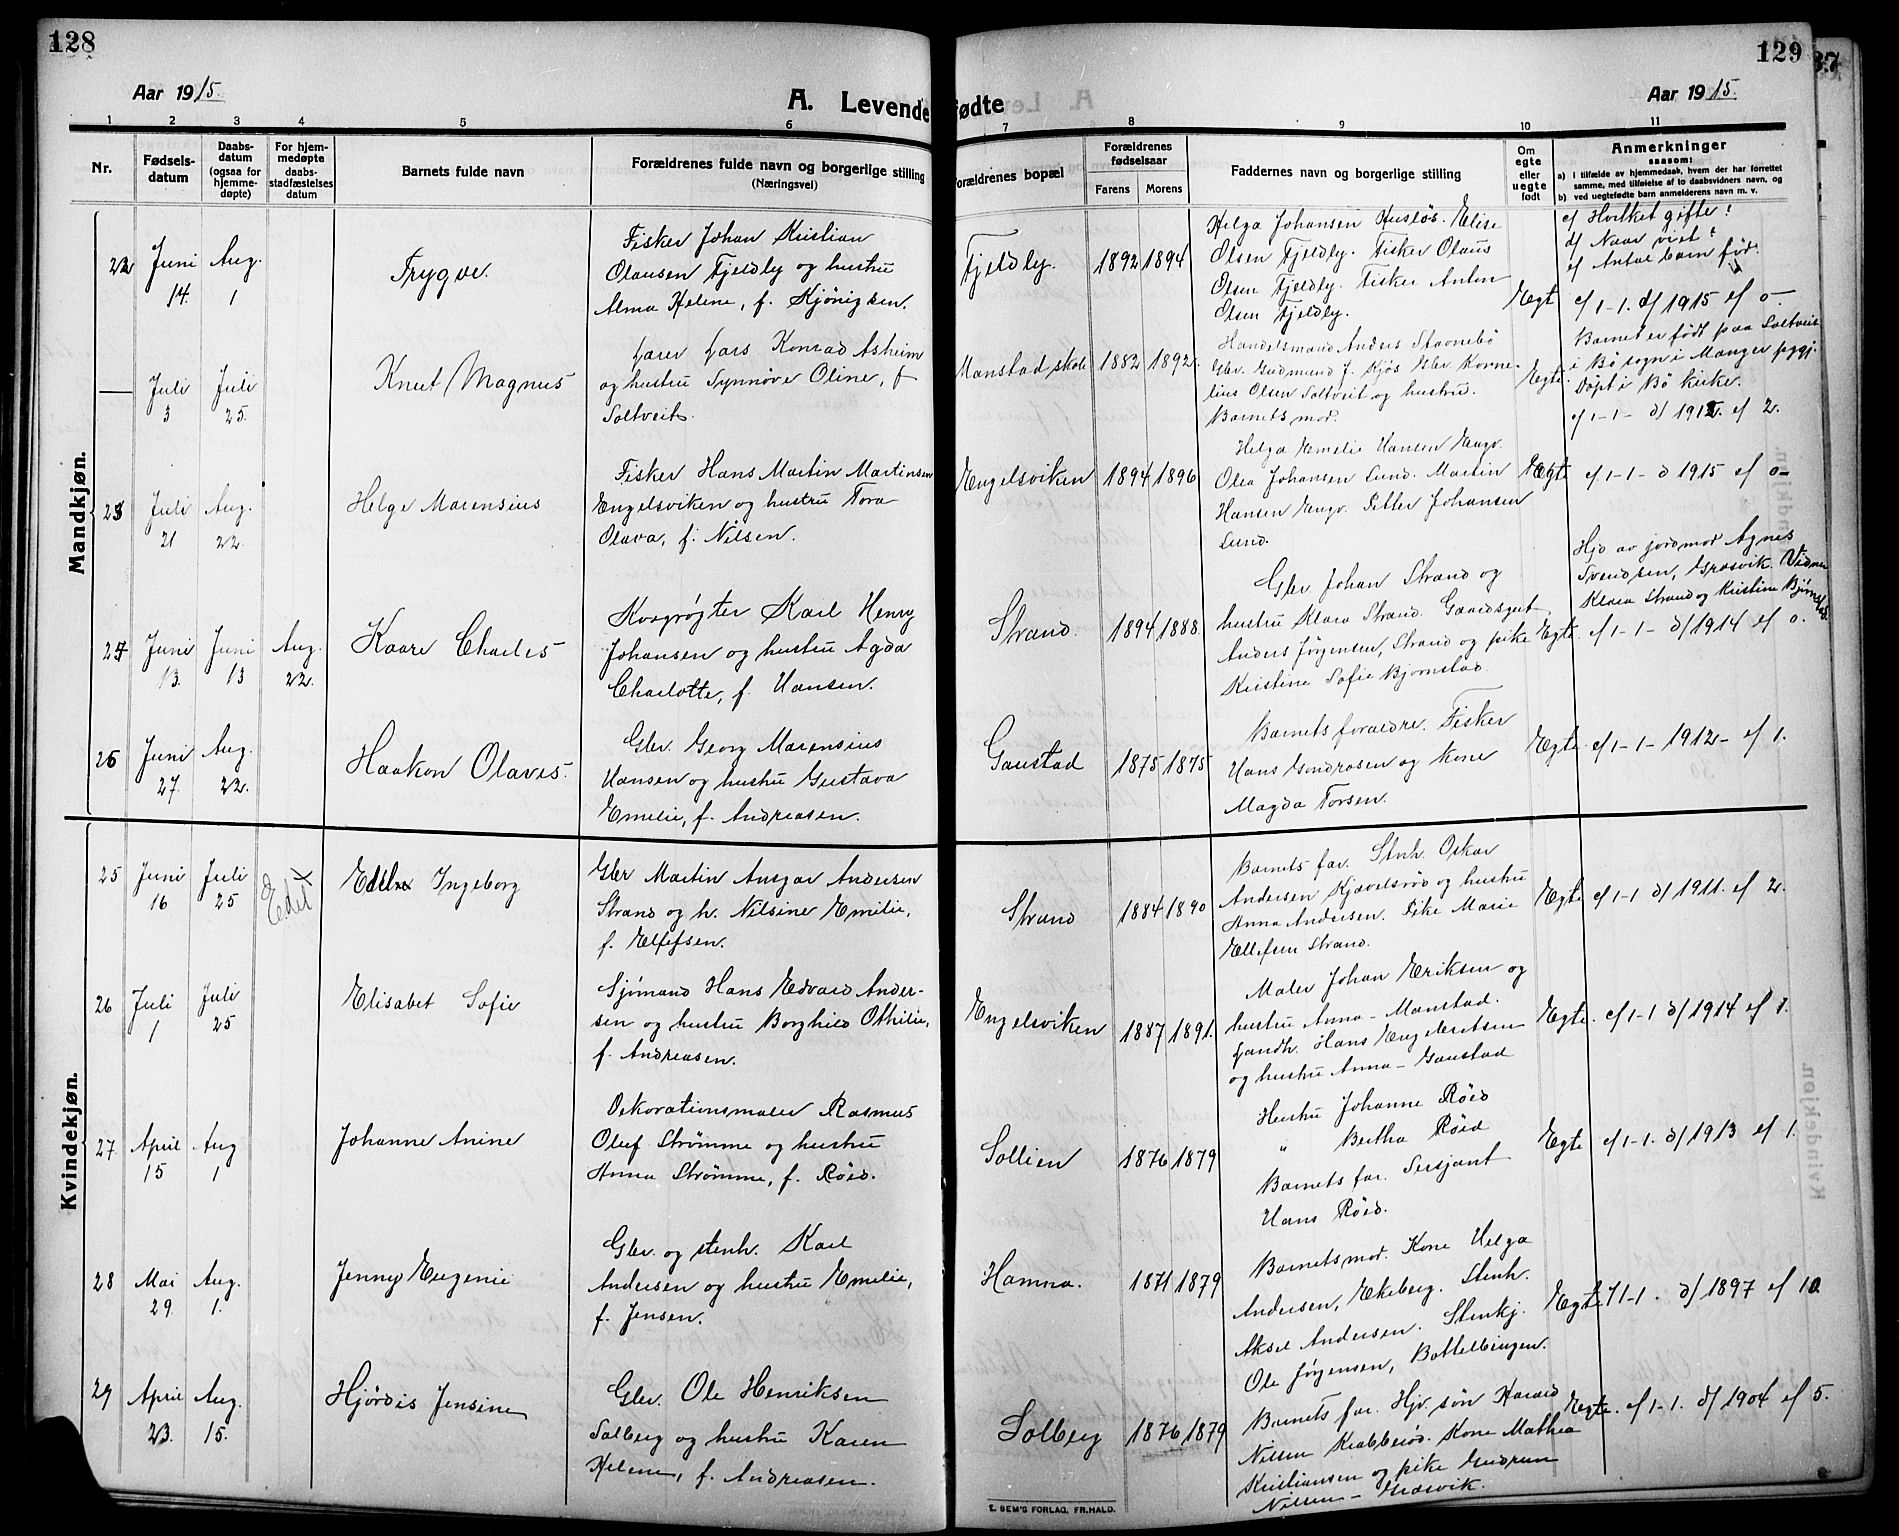 128
Aar 1915.
A. Levende
1 2 3 4 5 6
Nr.
Fødsels-
datum
Daabs-
datum
(ogsaa for
hjemme-
døpte)
For hjem-
medøpte
daabs-
stadfæstelses
datum
Barnets fulde navn
Forældrenes fulde navn og borgerlige stilling
(Næringsvei)
Mandkjøn.
22
Juni
14.
Aug.
1
Trygve.
Fisker Johan Kristian
Olausen Fjeldly og hustru
Alma Helene, f.
—
Juli
3
Juli
25.
Knut Magnus
Lærer Lars Konrad Asheim
og hustru Synnøve Oline, f
Soltveit.
23
Juli
21
Aug.
22.
Helge Marensius
Fisker Hans Martin Martinsen
Engelsviken og hustru Tora
Olava, f. Nilsen.
24
Juni
13.
Juni
13
Aug.
22.
Kaare Charles
Karl Henry
Johansen og hustru Agda
Charlotte, f. Hansen.
25
Juni
27.
Aug.
22.
Haakon Olaves.
Gbr. Georg Marensius
Hansen og hustru Gustava
Emelie, f. Andreasen.
Kvindekjøn.
25
Juni
16
Juli
25
Edel
Ingeborg
Gbr Martin Ansgar Andersen
Strand og h. Nilsine Emilie,
f. Ellefsen.
26
Juli
1
Juli
25
Elisabet Sofie
Sjømand Hans Edvard Ander-
sen og hustru Borghild Othilie,
f. Andreasen.
27
April
15
Aug
1
Johanne Anine
Dekorationsmaler Rasmus
Oluf Strømme og hustru
Anna Strømme, f. Røed.
28
Mai
29
Aug.
1.
Jenny Eugenie
Gbr. og stenh. Karl
Andersen og hustru Emelie,
f. Jensen.
29
April
23.
Aug.
15.
Hjørdis Jensine
Gbr. Ole Henriksen
Solberg og hustru Karen
Helene, f. Andreasen.
129
37
Aar 1915.
fødte
7 8 9 10 11
Forældrenes bopæl
Forældrenes
fødselsaar
Farens Morens
Faddernes navn og borgerlige stilling
Om
egte
eller
uegte
født
Anmerkninger
saasom:
a) I tilfælde av hjemmedaab, hvem der har forrettet
samme, med tilføielse af to daabsvidners navn, og
b) ved uegtefødte barn anmelderens navn m. v.
Fjeldly.
1892 1894
Helga Johansen Husløs. Elise
Olsen Fjeldly. Fisker Olaus
Olsen Fjeldly. Fisker Anton
Olsen Fjeldly.
Egt
c/ Hvilket gifte?
d/ Naar viet?
e/ Antal barn før?
c/ 1-1. d/ 1915 e/ 0-
Manstad skole
1882 1892.
Handelsmand Anders Stavnebø
Gbr. Gudmund J. Kjøs Gbr Korne-
lius Olsen Soltveit og hustru.
Barnets mor.
Egte.
Barnet er født paa Soltveit
i Bø sogn i Manger pgj.
Døpt i Bø kirke.
c/ 1-1- d/ e/ 2.
Engelsviken
1894 1896
Helga Emelie Hansen Engv.
Olea Johansen Lund. Martin
Hansen Engv. Petter Johansen
Lund.
Egte
c/ 1-1- d 1915 e/ 0-
Strand.
1894 1888
Gbr Johan Strand og
hustru Klara Strand. Gaardsgut
Anders Jørgensen, Strand og pike
Kristine Sofie Bjørnstad.
Egte.
Hjd av jordmor Agnes
Svendsen, Græsvik. Vidner
Klara Strand og Kristine Bjørnstad.
c/ 1-1- d/ 1914 e/ 0.
Gaustad
1875 1875
Barnets forældre. Fisker
Hans og Kone
Magda Torsen.
Egte.
c/ 1-1- 1912- e/ 1.
Strand
1884 1890
Barnets far. Stenh. Oskar
Andersen Kjævelsrød og hustru
Anna Andersen. Pike Marie
Ellefsen Strand.
Egte
c/ 1-1 d/ 1911. e/ 2.
Engelsviken
1887 1891.
Maler Johan Eriksen og
hustru Anna - Manstad.
Landh. Hans Engebretsen
og hustru Anna - Gaustad
Egte.
c/ 1-1 d/ 1914 e/ 1.
Sollien
1876 1879
Hustru Johanne Røed
" Bertha Røed
Barnets far. Sersjant
Hans Røed.
Egte
c/ 1-1. d/ 1913 e/ 1.
Hamna.
1871 1879
Barnets mor. Kone Helga
Andersen, Ekeberg. Stenh.
Aksel Andersen. Stenkj.
Ole Jørgensen,
Egte
c/ 1-1. d/ 1897 e/ 10
Solberg
1876 1879
Barnets far. Hjv. søn Harald
Nilsen Krabberød. Kone Mathea
Kristiansen og pike Gudrun
Nilsen - Græsvik.
Egte.
c/ 1-1. d/ 1904 e/ 5.
E. SEM'S FORLAG, FR.HALD.